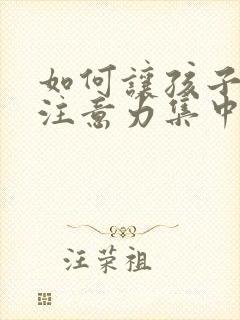 如何讓孩子
注意力集中
汪荣祖